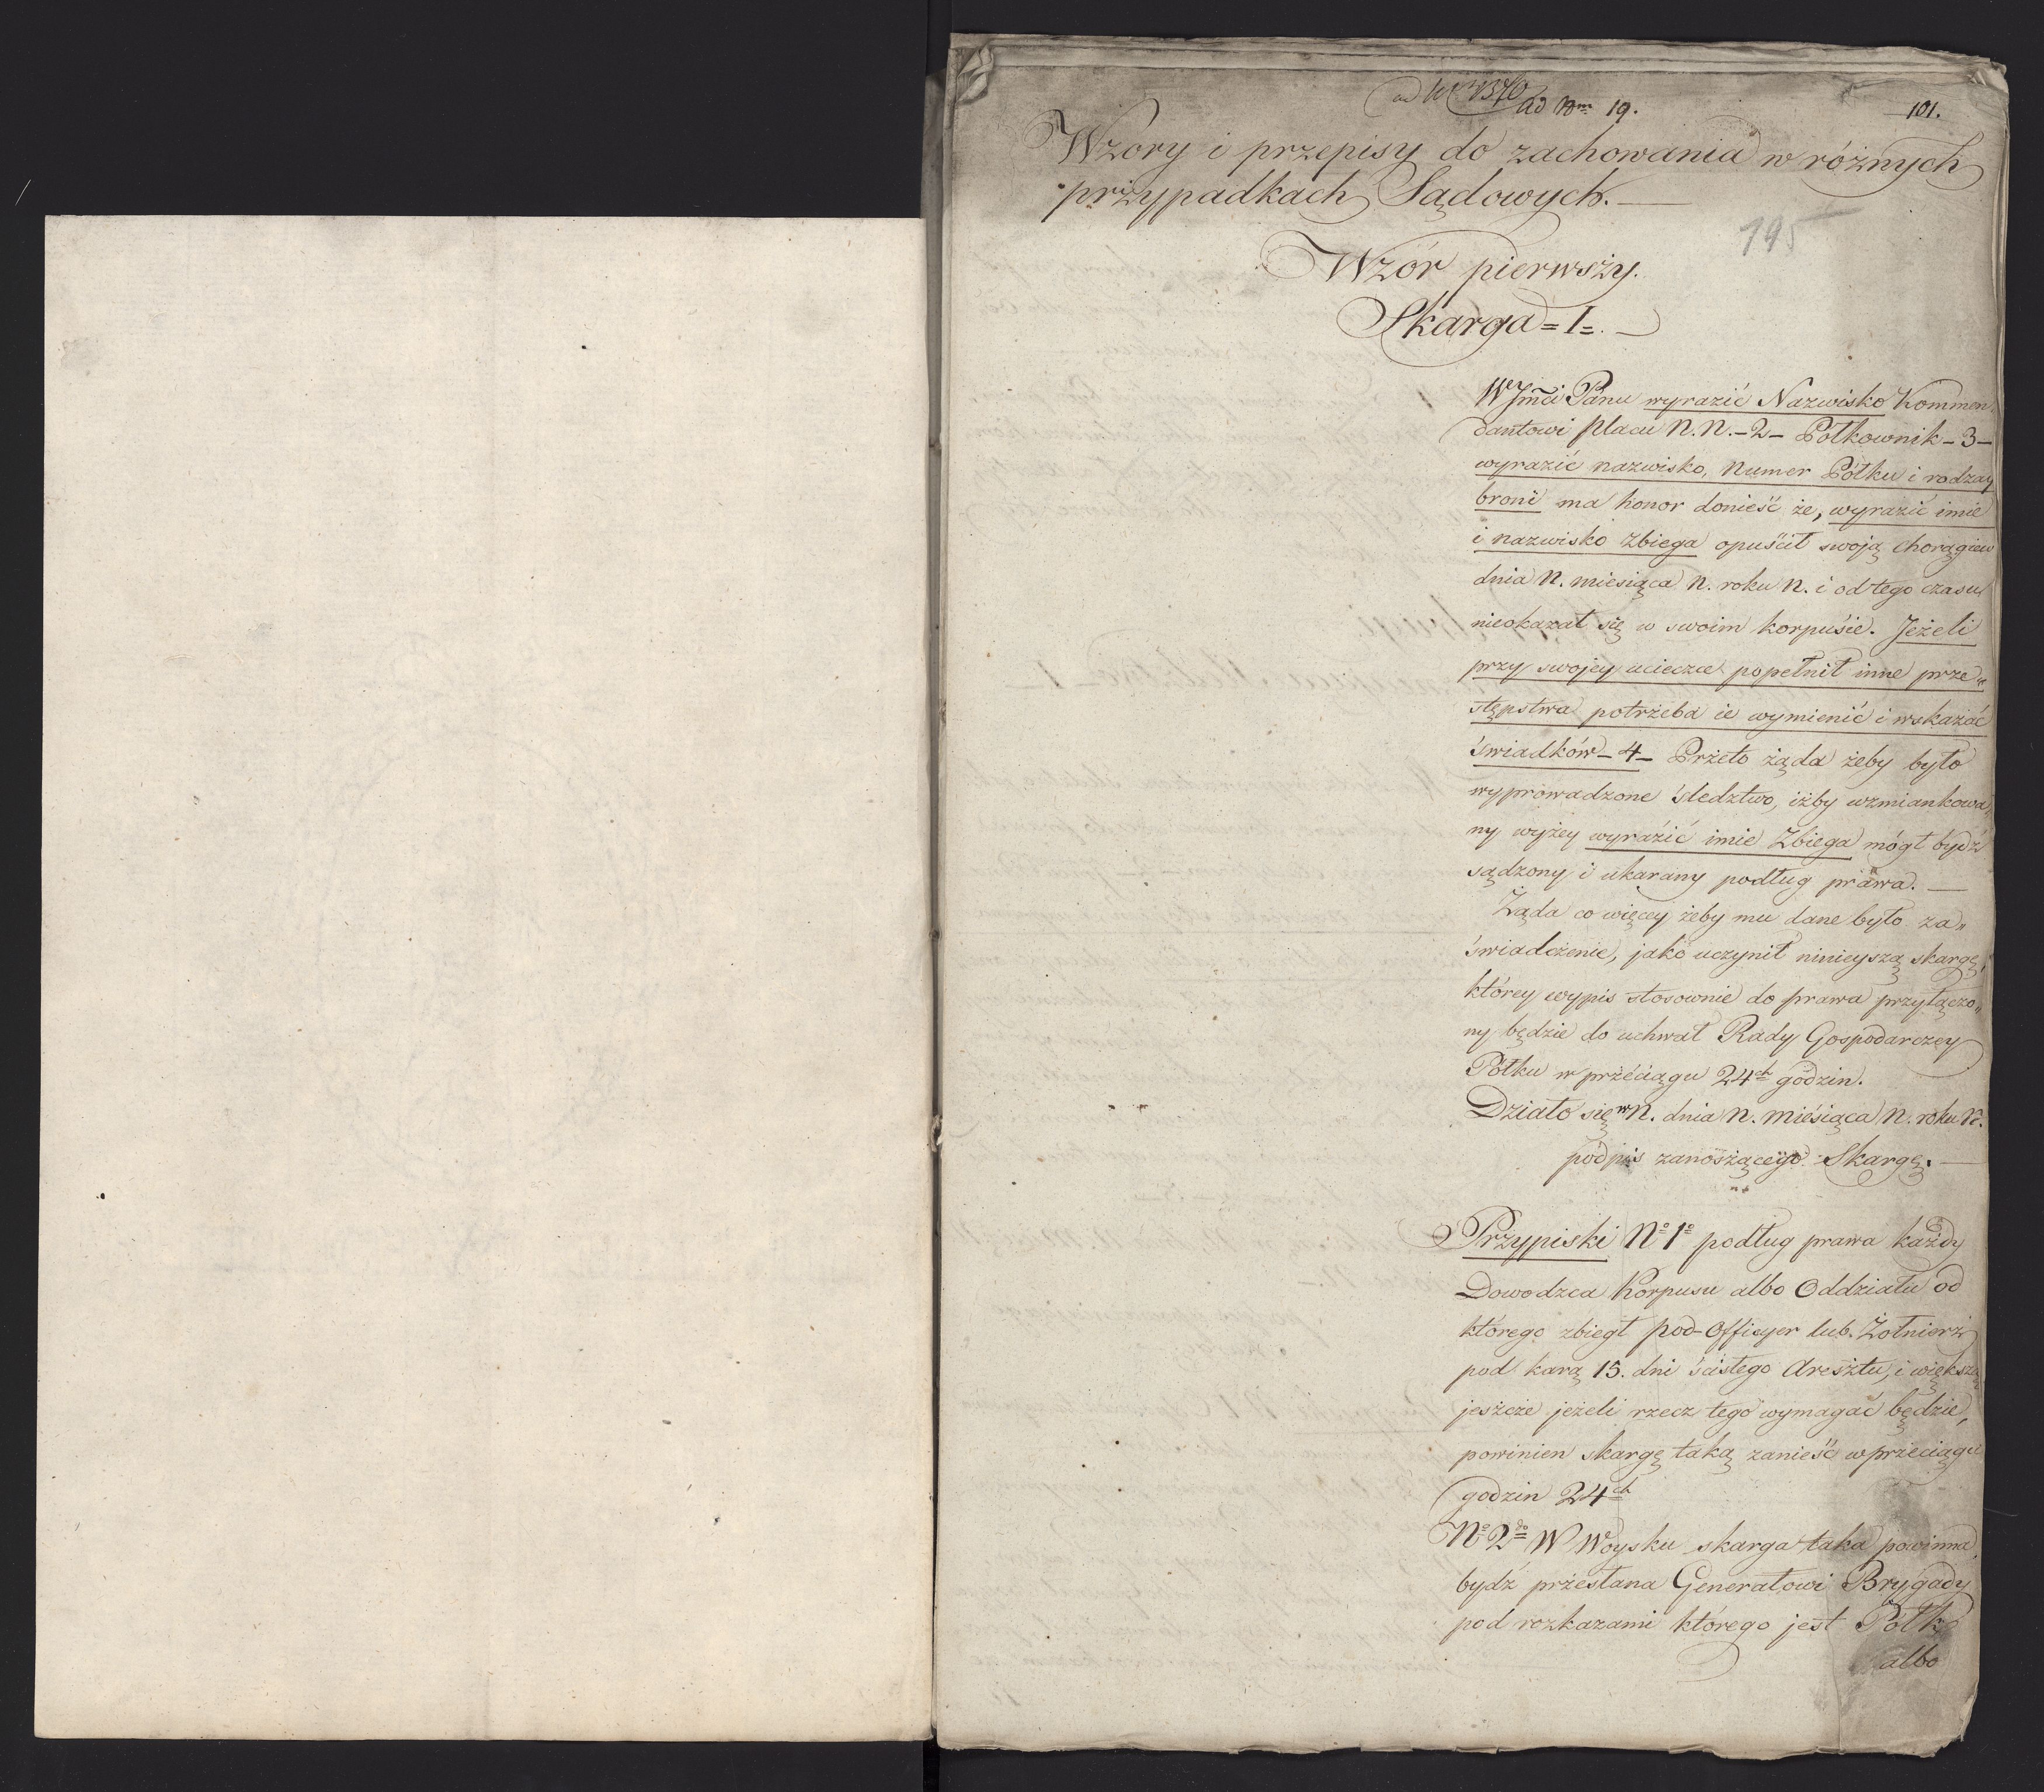 ad Nrm 19.
101.
Wzory i przepisy do zachowania w różnych
przypadkach Sądowych. —
195
Wzór pierwszy.
Skarga = I =. —
WJmći Panu wyrazić Nazwisko Kommen
dantowi placu N. N. – 2 – Półkownik – 3 –
wyrazić nazwisko, Numer Półku i rodzay
broni ma honor donieść że, wyrazić imie
i nazwisko zbiega opuścił swoją chorągiew
dnia N. miesiąca N. roku N. i od tego czasu
nieokazał się w swoim korpusie. Jeżeli
przy swojey ucieczce popełnił inne prze„
stępstwa potrzeba ie wymienić i wskazać
świadków – 4 – Przeto żąda żeby było
wyprowadzone śledztwo, iżby wzmiankowa„
ny wyżey wyrazić imie Zbiega mógł bydź
sądzony i ukarany podług prawa. —
Żąda co więcey żeby mu dane było za„
świadczenie, jako uczynił ninieyszą skargę,
którey wypis stosownie do prawa przyłączo„
ny będzie do uchwał Rady Gospodarczey
Półku w przeciągu 24ch godzin.
Działo się w N. dnia N. miesiąca N. roku N.
podpis zanoszącego Skargę. —
Przypiski No 1o podług prawa każdy
Dowodzca Korpusu albo Oddziału od
którego zbiegł pod-Officyer lub Żołnierz
pod karą 15. dni ścisłego Aresztu, i większą
jeszcze jeżeli rzecz tego wymagać będzie,
powinien skargę taką zanieść w przeciągu
godzin 24ch
No 2do W Woysku skarga taka powinna
bydź przesłana Generałowi Brygady
pod rozkazami którego jest Półk
albo